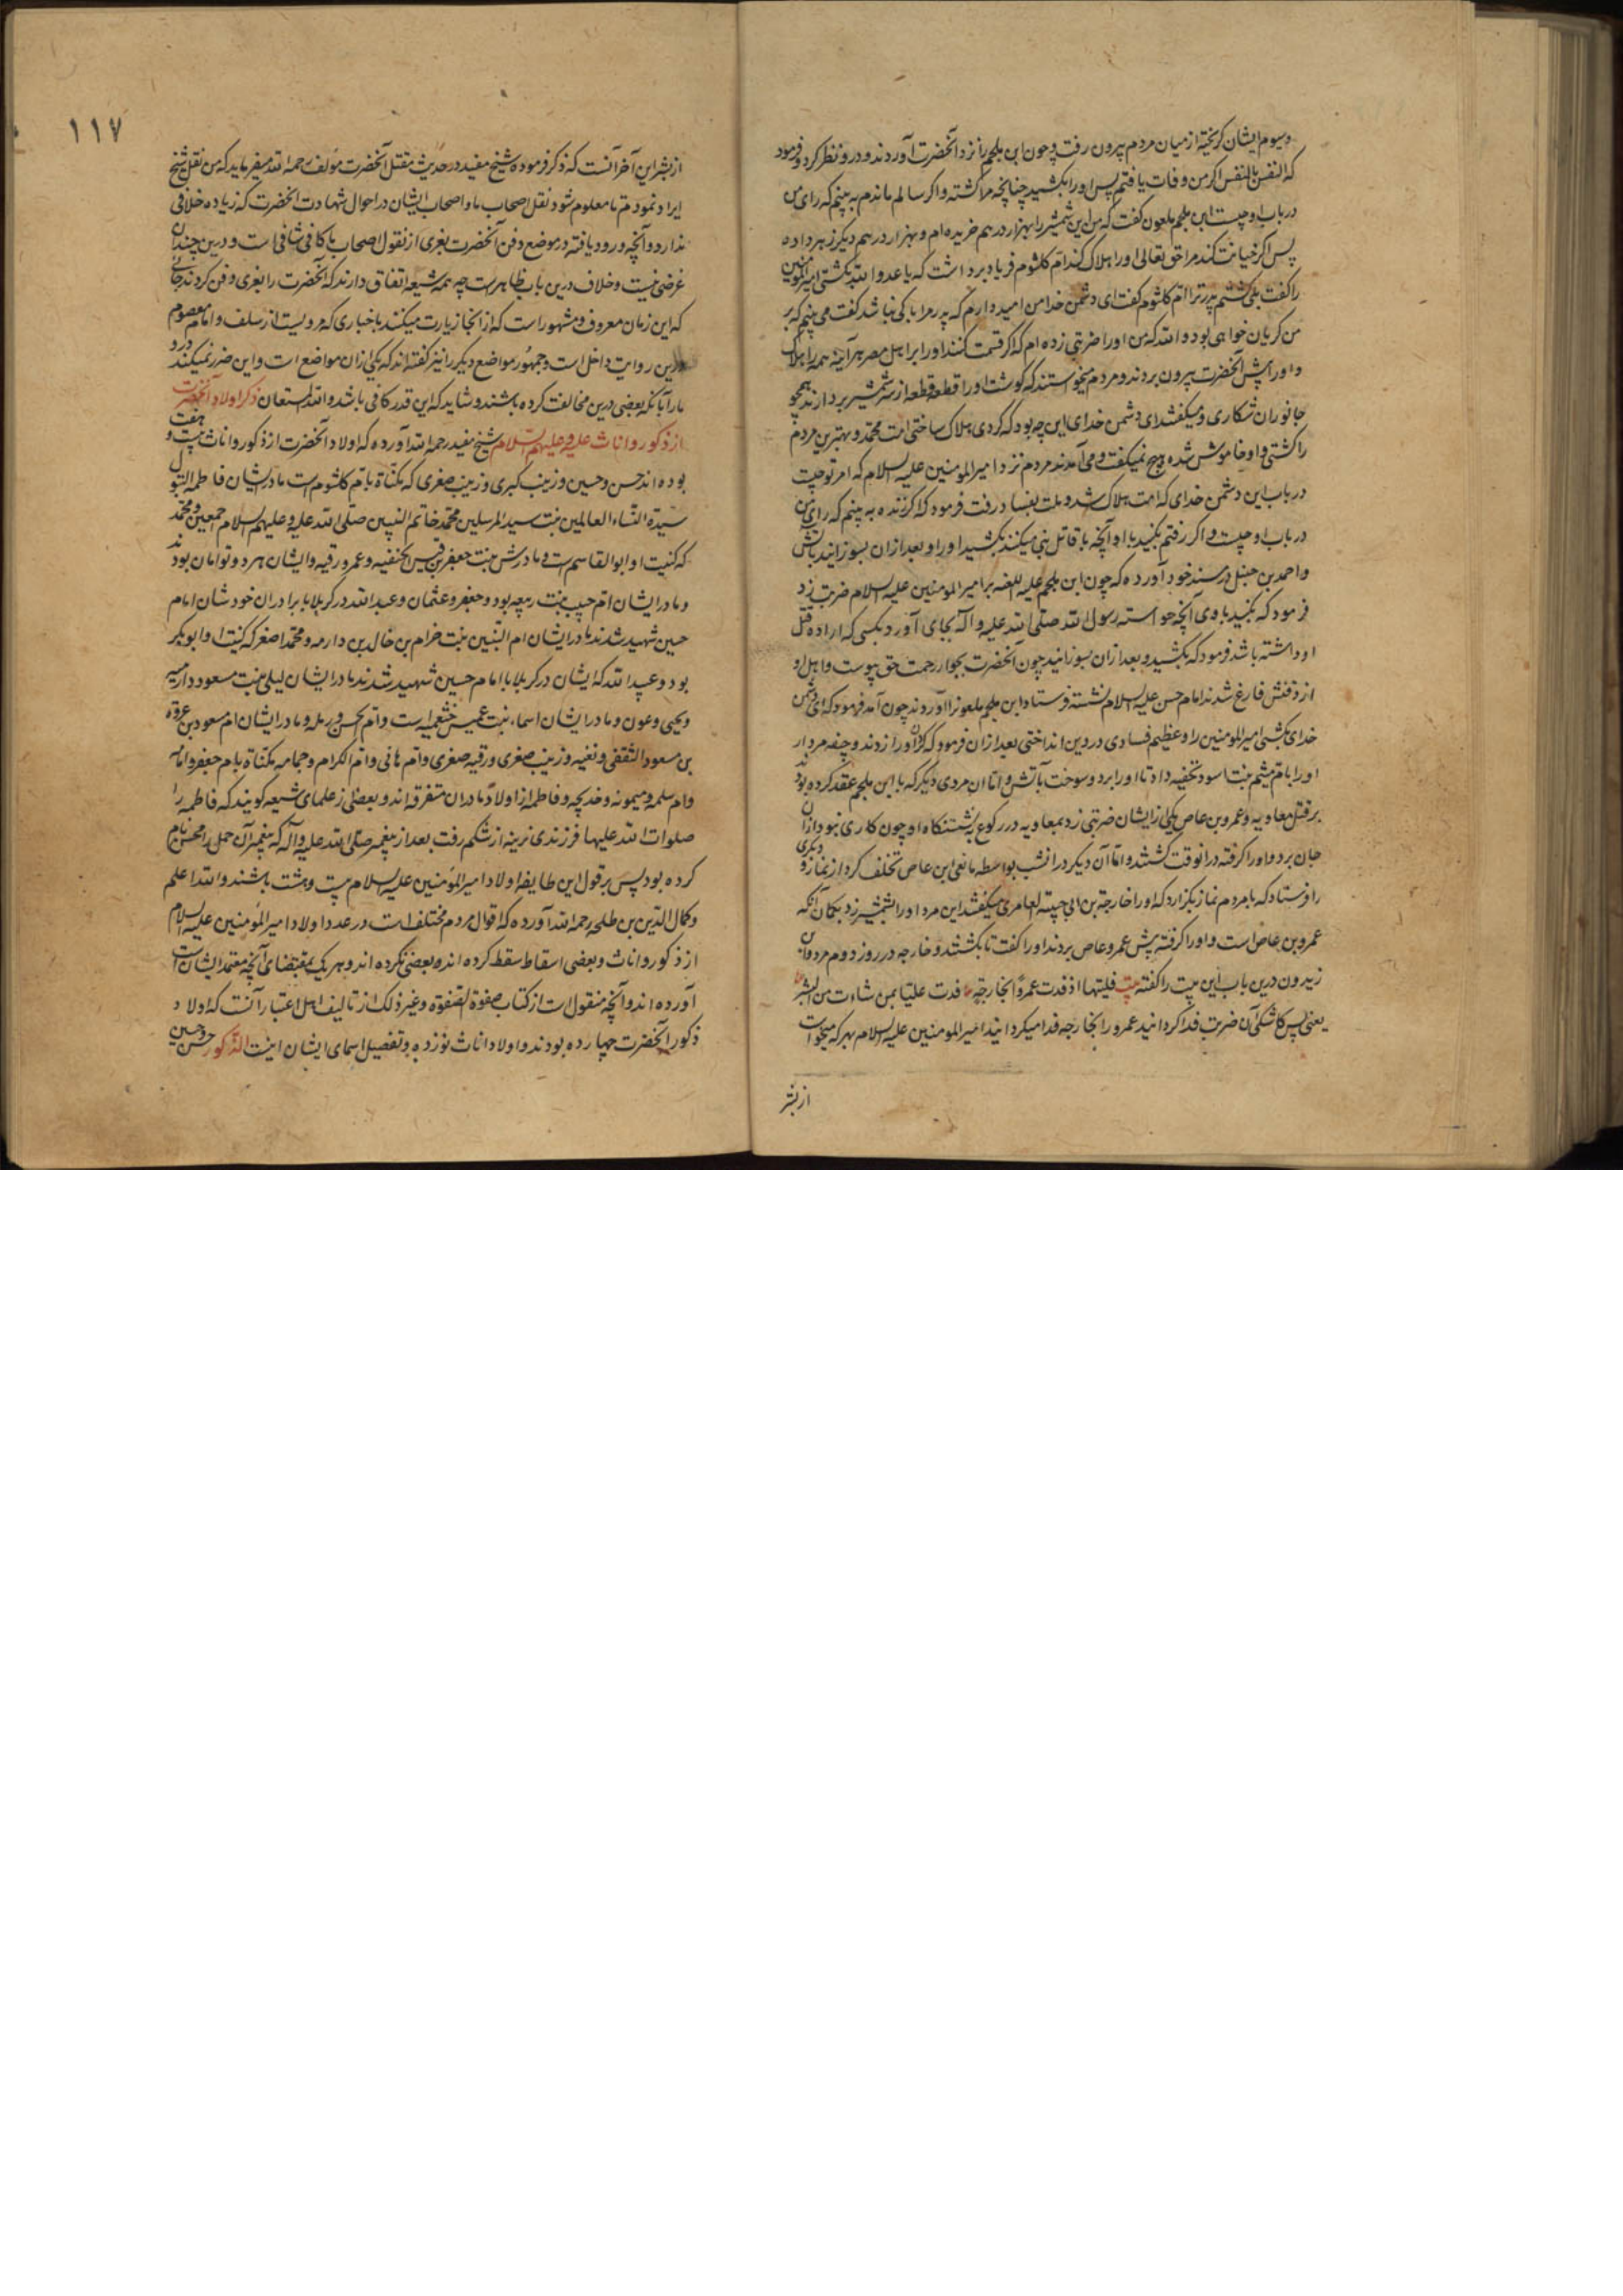 وسیوم ایشان کریخته از میان مردم بیرون رفت و چون ابن ملجم را نزد آنحضرت آوردند و درو نظر کرد و فرمود
که النفس بالنفس اکر من وفات یافتم پس اورا بکشید چنانچه مرا کشته و اکر سالم ماندم به بینم که رای من
در باب او چیست ابن ملجم ملعون کفت که من این شمشیر را بهزار درهم خریده ام و بهزار درهم دیکر زهر داده
پس اکر خیانت کند مرا حق تعالی اورا هلاک کند ام کلثوم فریاد برداشت که یا عدو الله بکشتی امیر المومنین
را کفت بلی کشتم پدر ترا ام کلثوم کفت ای دشمن خدا من امید دارم که پدر مرا باکی نباشد کفت می بینم که بر
من کریان خواهی بود والله که من اورا ضربتی زده ام که اکر قسمت کنند اورا بر اهل مصر هر آینه همه را هلاک
و اورا از پیش آنحضرت بیرون بردند و مردم میخواستند که کوشت اورا قطعه قطعه از سر شمشیر بردارند همچو
جانوران شکاری و میکفتند ای دشمن خدای این چه بود که کردی هلاک ساختی امت محمد و بهترین مردم
را کشتی و او خاموش شده هیچ نمیکفت و می آمدند مردم نزد امیر المومنین علیه السلام که امر تو چیست
در باب این دشمن خدای که امت هلاک شد و ملت بفساد رفت فرمود که اکر زنده به بینم که رای من
در باب او چیست و اکر رفتم بکنید با او آنچه با قاتل نبی میکنند بکشید اورا و بعد ازان بسوزانید بآتش
و احمد بن حنبل در مسند خود آورده که چون ابن ملجم علیه اللعنه بر امیر المومنین علیه السلام ضربت زد
فرمود که بکنید با وی آنچه خواسته رسول الله صلی الله علیه و آله بجای آورد بکسی که اراده قتل
او داشته باشد فرمود که بکشید و بعد ازان بسوزانید چون آنحضرت بجوار رحمت حق پیوست و اهل او
از دفنش فارغ شدند امام حسن علیه السلام نشسته فرستاد ابن ملجم ملعونرا آوردند چون آمد فرمود که ای دشمن
خدای بکشتی امیر المومنین را و عظیم فسادی در دین انداختی بعد ازان فرمود که کردن اورا زدند و جیفه مردار
اورا بام هیثم بنت اسود نخعیه داد تا اورا برد و سوخت بآتش و اما ان مردی دیکر که با ابن ملجم عقد کرده بودند
بر قتل معاویه و عمرو بن عاص یکی از ایشان ضربتی زد بمعاویه در رکوع بر نشستنکاه او چون کاری نبود ازان
جان برد و اورا کرفته در انوقت کشتند و اما آن دیکر در انشب بواسطه مانعی ابن عاص تخلف کرد از نماز و دیکری
را فرستاد که با مردم نماز بکزارد که اورا خارجة بن ابی حبیبة العامری میکفتند این مرد اورا شمشیر زد بکمان آنکه
عمرو بن عاص است و اورا کرفته پیش عمرو عاص بردند اورا کفت تا بکشتند و خارجه در روز دوم مرد و ابن
زیدون درین باب این بیت را کفته بیت فلیتها اذ فدت عمرًا بخارجة فدت علیا بمن شاءت من البشر
یعنی پس کاشکی آن ضربت فدا کردانید عمرو را بخارجه فدا میکردانید امیر المومنین علیه السلام بهر که میخواست
از بشر
۱۱۷
از بشر این آخر آنست که ذکر فرموده شیخ مفید در حدیث مقتل آنحضرت مؤلف رحمه الله میفرماید که من نقل شیخ
ایراد نمودم تا معلوم شود نقل اصحاب ما و اصحاب ایشان در احوال شهادت انحضرت که زیاده خلافی
ندارد و آنچه ورود یافته در موضع دفن آنحضرت بغری از نقول اصحاب ما کافی شافی است و درین چندان
غرضی نیست و خلاف درین باب ظاهرست چه همه شیعه اتفاق دارند که آنحضرت را بغری دفن کردند جائی
که این زمان معروف و مشهور است که از انجا زیارت میکنند باخباری که مرویست از سلف و امام معصوم
درین روایت داخل است و جمهور مواضع دیکر را نیز کفته اند که یکی ازان مواضع است و این ضرر نمیکند درو
ما را با آنکه بعضی درین مخالفت کرده باشند و شاید که این قدر کافی باشد والله المستعان ذکر اولاد آنحضرت
از ذکور و اناث علیه و علیهم السلام شیخ مفید رحمه الله آورده که اولاد آنحضرت از ذکور و اناث بیست و هفت
بوده اند حسن و حسین و زینب کبری و زینب صغری که مکناة بام کلثوم است مادر ایشان فاطمه البتول
سیدة النساء العالمین بنت سید المرسلین محمد خاتم النبیین صلی الله علیه و علیهم السلام اجمعین و محمد
که کنیت او ابو القاسم است و مادرش بنت جعفر بن قیس الحنفیه و عمر و رقیه و ایشان هر دو توامان بودند
و مادر ایشان ام حبیب بنت ربیعه بود و جعفر و عثمان و عبدالله در کربلا با برادران خود شان امام
حسین شهید شدند مادر ایشان ام البنین بنت خزام بن خالد بن دارمه و محمد اصغر که کنیت او ابو بکر
بود و عبید الله که ایشان در کربلا با امام حسین شهید شدند مادر ایشان لیلی بنت مسعود دارمیه
و یحیی و عون و مادر ایشان اسماء بنت عمیس خثعمیه است و ام الحسن و رمله و مادر ایشان ام مسعود بن عروة
بن مسعود الثقفی و نفیه و زینب صغری و رقیه صغری و ام هانی و ام الکرام و جمامه مکناة بام جعفر و امامه
و ام سلمه و میمونه و خدیجه و فاطمه از اولاد مادران متفرقه اند و بعضی از علمای شیعه کویند که فاطمه را
صلوات الله علیها فرزندی نرینه از شکم رفت بعد از پیغمبر صلی الله علیه و آله که پیغمبر آن حمل را محسن نام
کرده بود پس بر قول این طایفه اولاد امیر المؤمنین علیه السلام بیست و هشت باشند والله اعلم
و کمال الدین بن طلحه رحمه الله آورده که اقوال مردم مختلف است در عدد اولاد امیر المؤمنین علیه السلام
از ذکور و اناث و بعضی اسقاط سقط کرده اند و بعضی نکرده اند و هر یک بمقتضای آنچه معتمد ایشان است
آورده اند و آنچه منقول است از کتاب صفوة الصفوة و غیر ذلک از تالیف اهل اعتبار آنست که اولاد
ذکور آنحضرت چهارده بودند و اولاد اناث نوزده و تفصیل اسمای ایشان اینست الذکور حسن و حسین